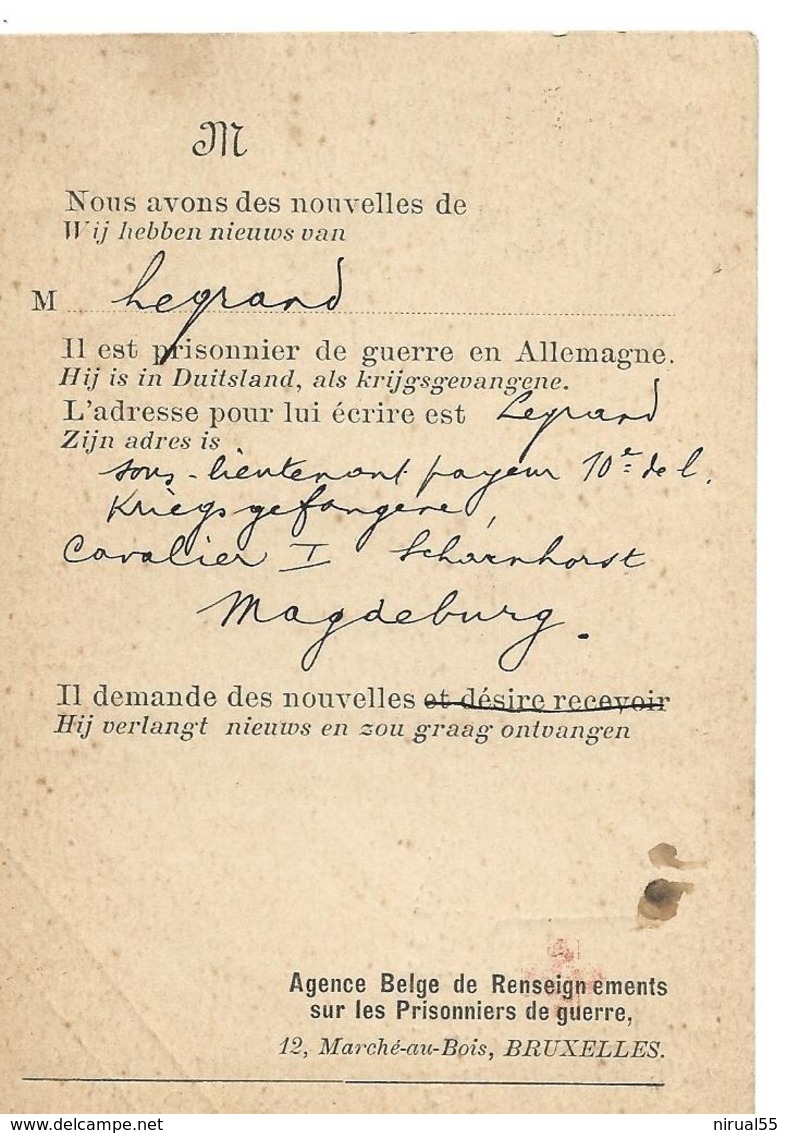 M
Nous avons des nouvelles de
Wij hebben nieuws van
M Legrand
Il est prisonnier de guerre en Allemagne.
Hij is in Duitsland, als krijgsgevangene.
L'adresse pour lui écrire est Legrand
Zijn adres is
sous-lieutenant payeur 10e de l.
Kriegsgefangene,
Cavalier I Scharnhorst
Magdeburg.
Il demande des nouvelles et désire recevoir
Hij verlangt nieuws en zou graag ontvangen
Agence Belge de Renseignements
sur les Prisonniers de guerre,
12, Marché-au-Bois, BRUXELLES.
delcampe.net
nirual55